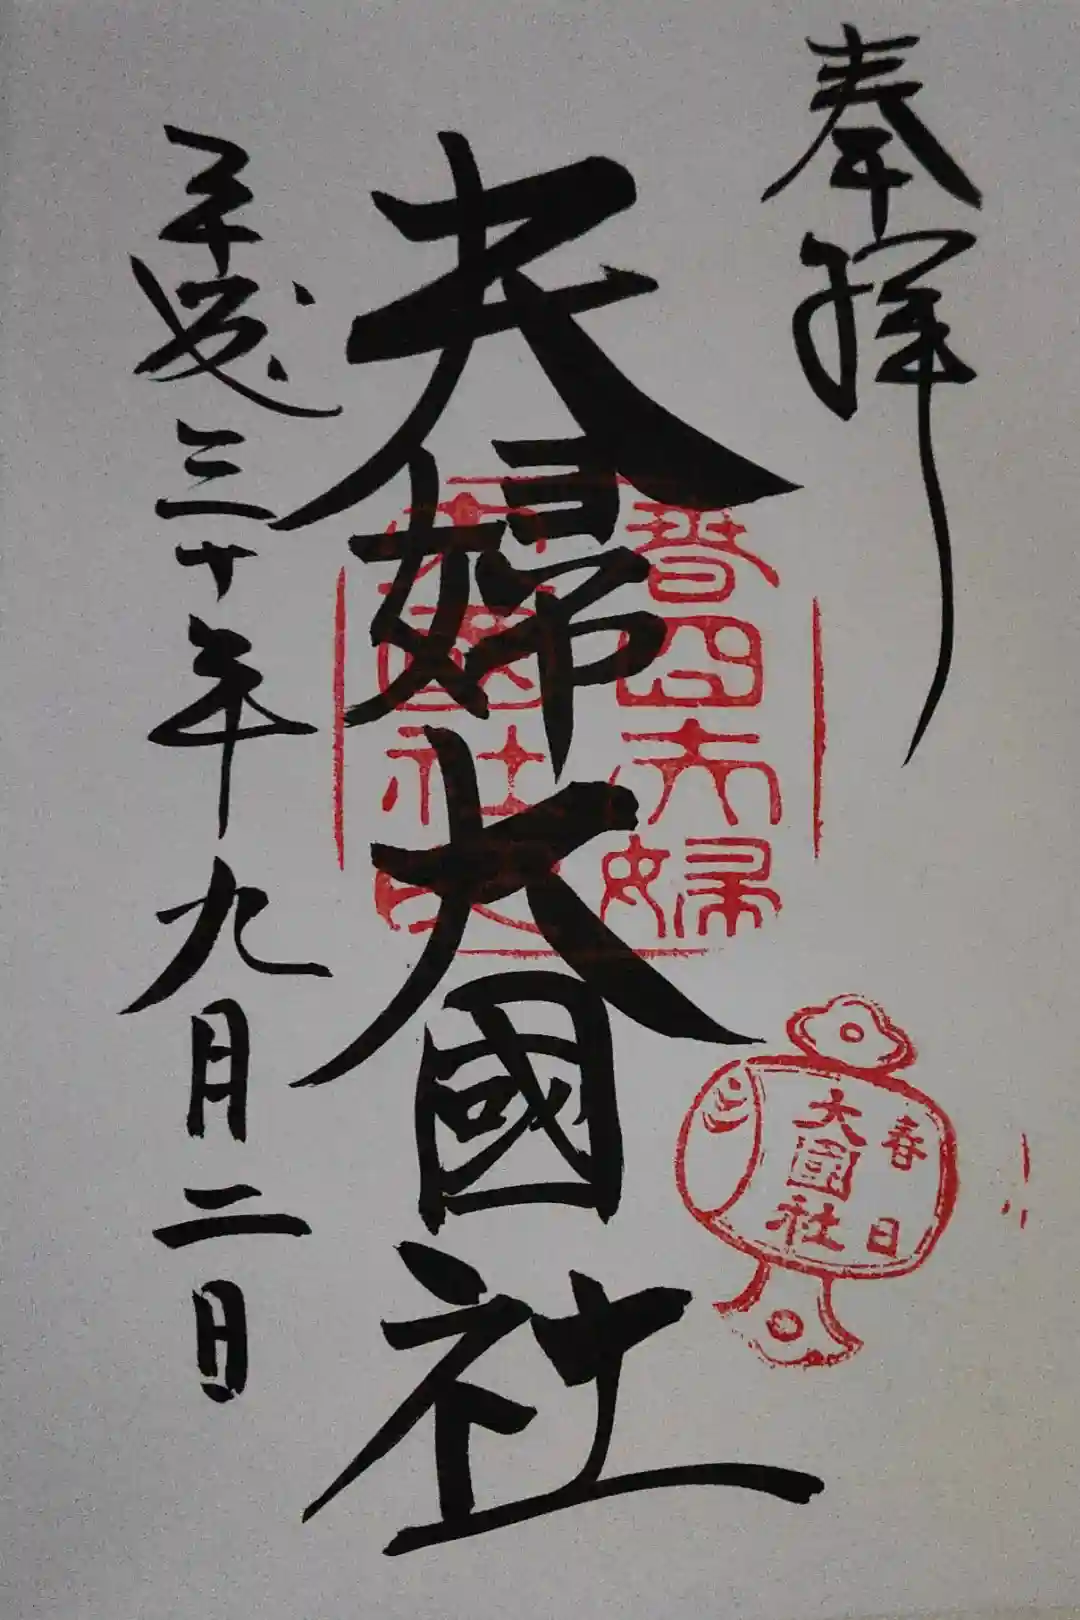 奉拝
夫婦大國社
平成三十年九月二日
春日
大國社
春日夫婦
大國社印